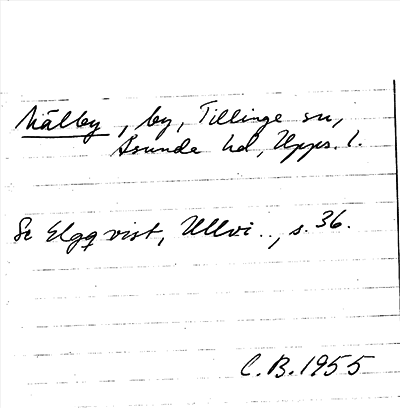 Mälby, by, Tillinge sn,
Åsunda hd, Upps. l.
Se Elgqvist, Ullvi.., s. 36.
C.B. 1955